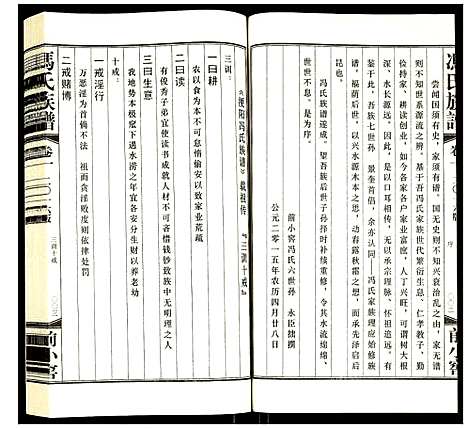 馮氏族譜 卷一 二〇一六版 序 〇〇三二
前小窖
尝闻国须有史，家须有谱。国无史则不知兴衰治乱之由，家无谱
则不知世系源流之辨。基于吾冯氏家族世代繁衍生息、仁孝教子、勤
俭持家、耕读创业，如今各家各户家业富庶，人丁兴旺，可谓树大根
深、水长源远。因此，是以口耳相传，无以承宗理脉、怀祖追远。有
鉴于此，吾族七世孙 景奎首倡，余亦认同 冯氏家族理应始修族
谱，福荫后世，以兴水源木本之思想，动春露秋霜之想，而承先泽启后
昆也。
冯氏族谱遂成。望吾族后世子孙择时补续重修，令其水流绵绵、
世世不息。是为序。
前小窖冯氏六世孙 永臣拙撰
公元二零一五年农历四月廿八日
馮氏族譜 卷一 二〇一六版 三训十戒 〇〇三三
前小窖
《溧阳冯氏族谱》载祖传『三训十戒』
三训：
一曰耕
农以食为本不可怠惰偷安以致家业荒疏
二曰读
有俊秀子弟宜使读书成就人材不可吝惜钱钞致族中无明理之人
三曰生意
我地势本极窊下遇水涝之年宜各安分生财以养老幼
十戒：
一戒淫行
万恶淫为首倘不法 祖而贪淫败度则依律惩处
二戒赌博